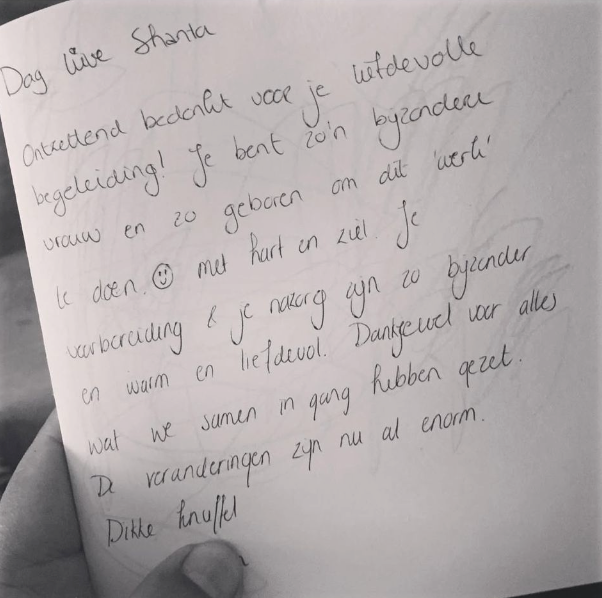 Dag lieve Shanta
Ontzettend bedankt voor je liefdevolle
begeleiding! Je bent zo'n byzondere
vrouw en zo geboren om dit 'werk'
te doen. ☺ met hart en ziel. Je
voorbereiding & je nazorg zijn zo byzonder
en warm en liefdevol. Dankjewel voor alles
wat we samen in gang hebben gezet.
De veranderingen zijn nu al enorm.
Dikke knuffel